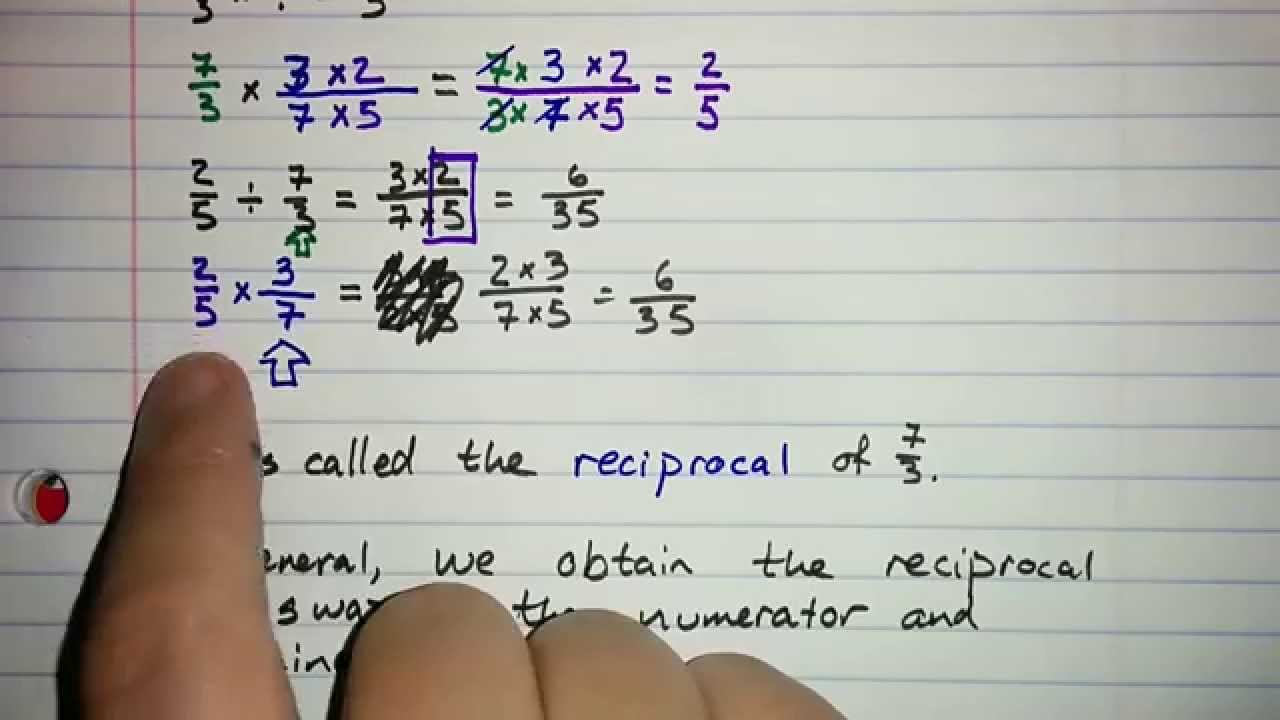 7/3 × 3 × 2 / 7 × 5 = 7 × 3 × 2 / 3 × 7 × 5 = 2/5
2/5 ÷ 7/3 = 3 × 2 / 7 × 5 = 6/35
2/5 × 3/7 = 2 × 3 / 7 × 5 = 6/35
called the reciprocal of 7/3.
we obtain the reciprocal
numerator and